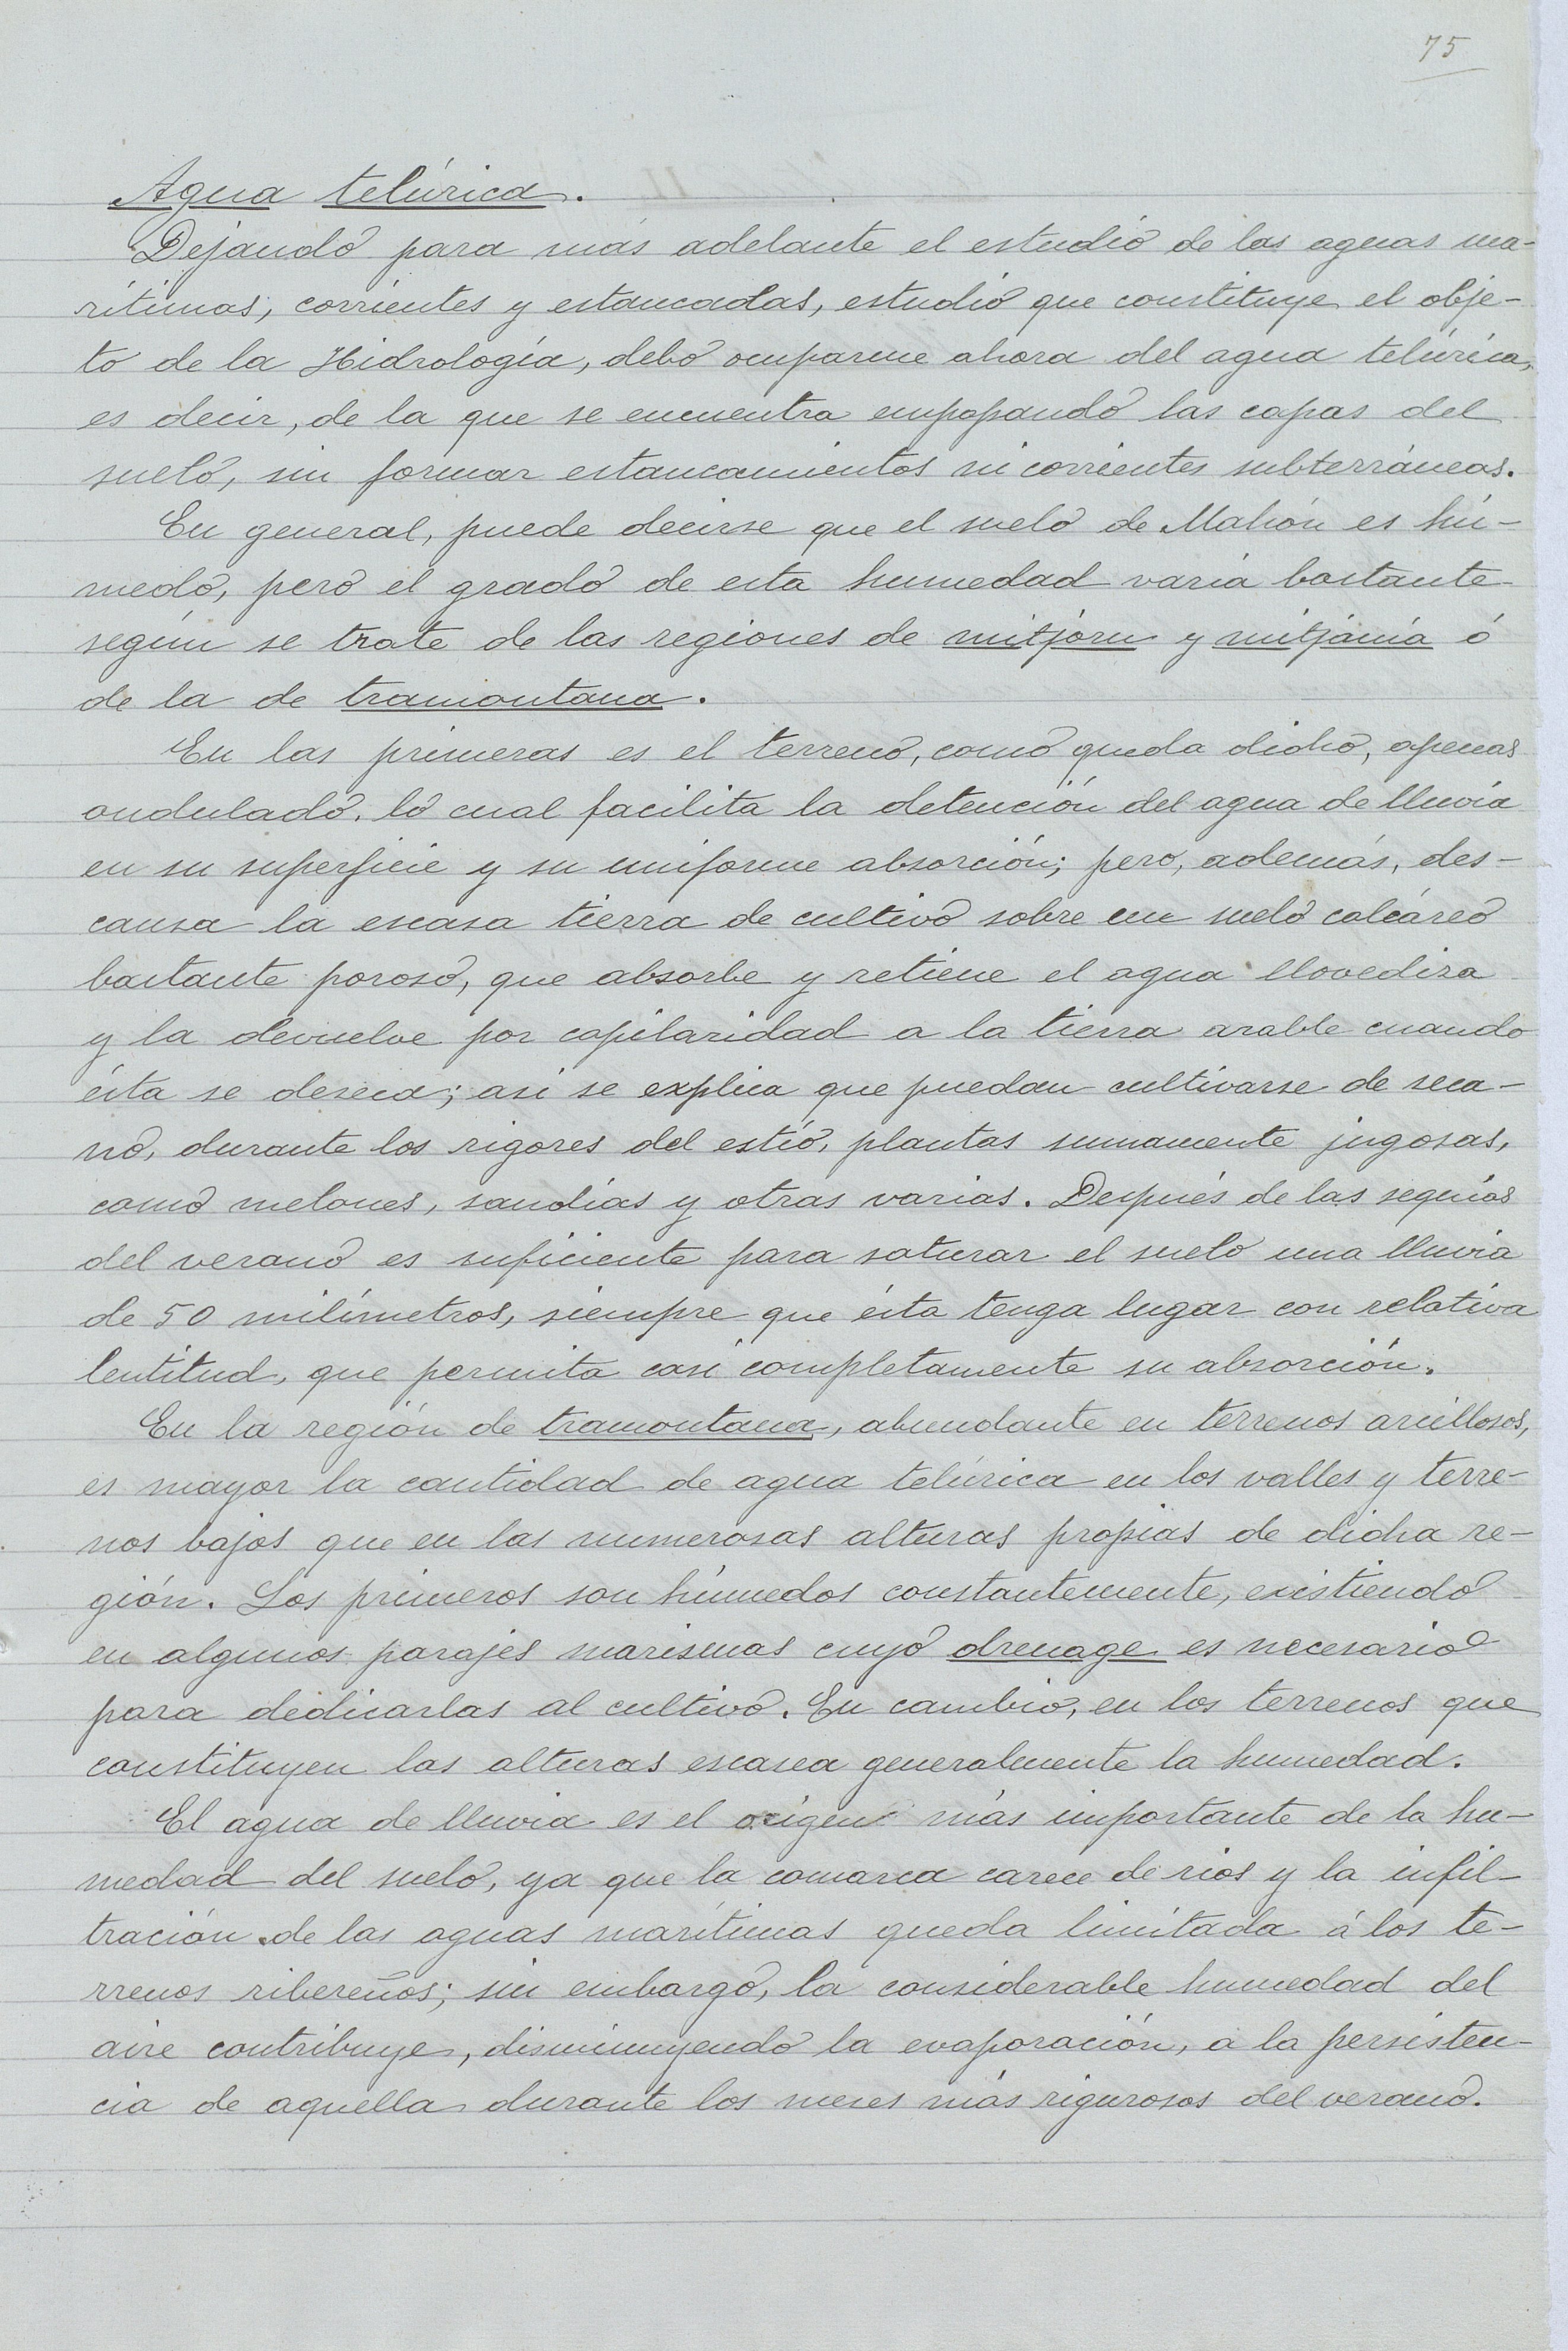 75
Agua telúrica.
Dejando para más adelante el estudio de las aguas ma-
rítimas, corrientes y estancadas, estudio que constituye el obje-
to de la Hidrología, debo ocuparme ahora del agua telúrica,
es decir, de la que se encuentra empapando las capas del
suelo, sin formar estancamientos ni corrientes subterráneas.
En general, puede decirse que el suelo de Mahón es hú-
medo, pero el grado de esta humedad varía bastante
según se trate de las regiones de mitjorn y mitjanía ó
de la de tramontana.
En las primeras es el terreno, como queda dicho, apenas
ondulado, lo cual facilita la detención del agua de lluvia
en su superficie y su uniforme absorción; pero, además, des-
cansa la escasa tierra de cultivo sobre un suelo calcáreo
bastante poroso, que absorbe y retiene el agua llovediza
y la devuelve por capilaridad a la tierra arable cuando
ésta se deseca; así se explica que puedan cultivarse de seca-
no, durante los rigores del estío, plantas sumamente jugosas,
como melones, sandías y otras varias. Después de las sequías
del verano es suficiente para saturar el suelo una lluvia
de 50 milímetros, siempre que ésta tenga lugar con relativa
lentitud, que permita casi completamente su absorción.
En la región de tramontana, abundante en terrenos arcillosos,
es mayor la cantidad de agua telúrica en los valles y terre-
nos bajos que en las numerosas alturas propias de dicha re-
gión. Los primeros son húmedos constantemente, existiendo
en algunos parajes marismas cuyo drenage es necesario
para dedicarlas al cultivo. En cambio, en los terrenos que
constituyen las alturas escasea generalmente la humedad.
El agua de lluvia es el orígen más importante de la hu-
medad del suelo, ya que la comarca carece de rios y la infil-
tración de las aguas marítimas queda limitada á los te-
rrenos ribereños; sin embargo, la considerable humedad del
aire contribuye, disminuyendo la evaporación, a la persisten-
cia de aquella durante los meses más rigurosos del verano.